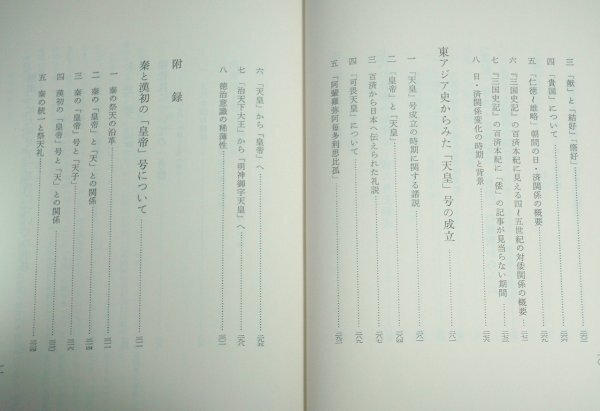 三 「献」と「結好」「脩好」
四 「貴国」について
五 「仁徳〜雄略」朝間の日・済関係の概要
六 『三国史記』の百済本紀に見える四〜五世紀の対倭関係の概要
七 『三国史記』の百済本紀に「倭」の記事が見当らない期間
八 日・済関係変化の時期と背景
東アジア史からみた「天皇」号の成立
一 「天皇」号成立の時期に関する諸説
二 「皇帝」と「天皇」
三 百済から日本へ伝えられた礼説
四 「可畏天皇」について
五 「阿輩雞弥阿毎多利思比孤」
六 「天皇」から「皇帝」へ
七 「治天下大王」から「明神御宇天皇」へ
八 徳治意識の稀薄性
附録
秦と漢初の「皇帝」号について
一 秦の祭天の沿革
二 秦の「皇帝」と「天」との関係
三 秦の「皇帝」号と「天子」
四 漢初の「皇帝」号と「天」との関係
五 秦の統一と祭天礼